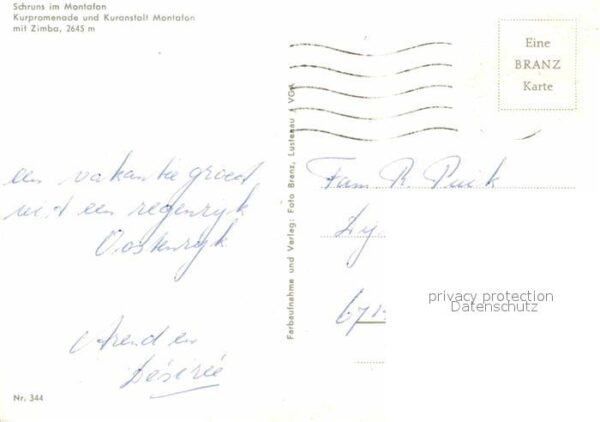 Schruns im Montafon
Kurpromenade und Kuranstalt Montafon
mit Zimba, 2645 m
Eine
BRANZ
Karte
een vakantiegroet
uit een regenryk
Oostenryk
Arend en
Désirée
Nr. 344
Farbaufnahme und Verlag: Foto Branz, Lustenau / VGA
Fam R. Puik
privacy protection
Datenschutz